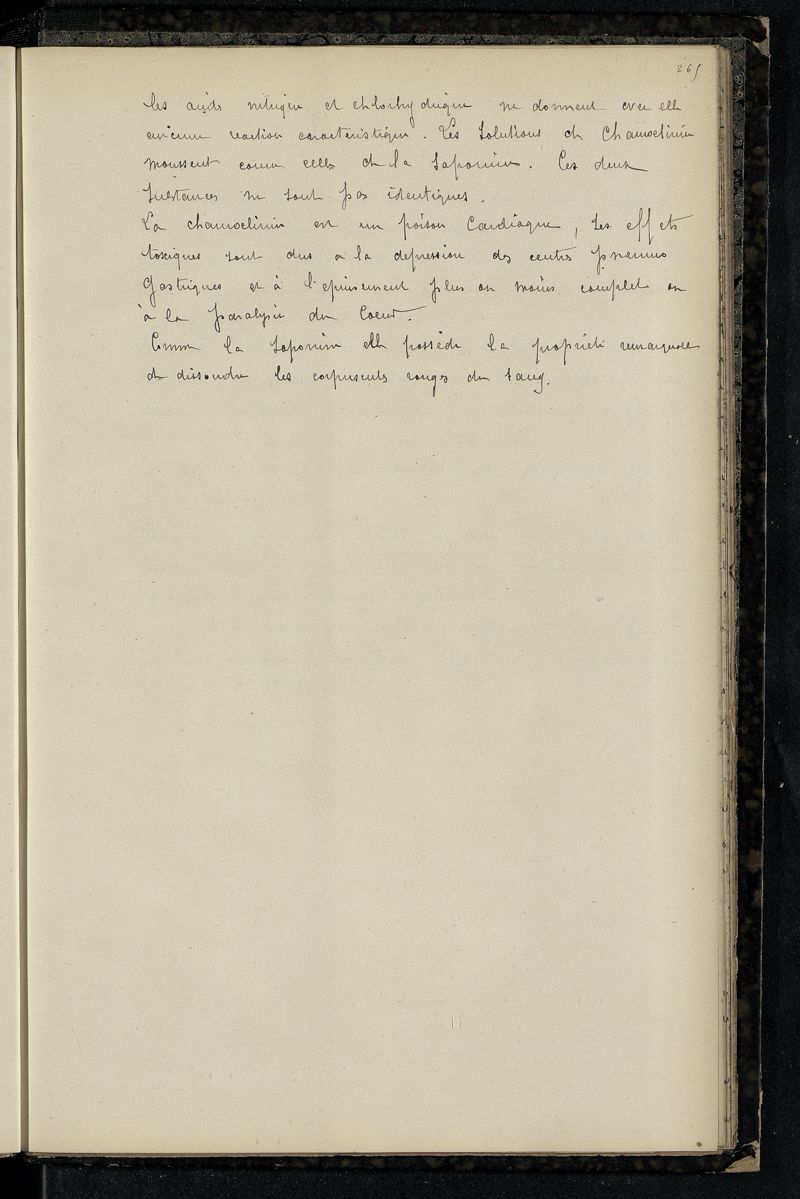 265
les acides nitrique et chlorhydrique ne donnent avec elle
aucune reaction caracteristique. Les solutions de Chamoelirin
moussent comme celles de la Saponine. Ces deux
substances ne sont pas identiques.
La chamoelirin est un poison Cardiaque, ses effets
toxiques sont dus a la depression des centres pneumo
Gastriques et à l'epuisement plus ou moins complet ou
à la paralysie du Coeur.
Comme la saponine elle possède la propriété remarquable
de dissoudre les corpuscules rouges du sang.